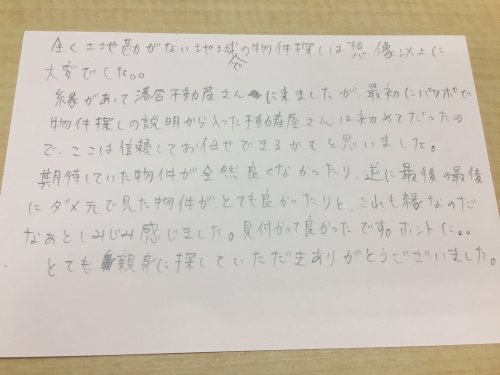 全く土地勘がない地域での物件探しは想像以上に
大変でした。。
縁があって落合不動産さんに来ましたが最初にパワポで
物件探しの説明から入った不動産屋さんは初めてだったの
で、ここは信頼してお任せできるかもと思いました。
期待していた物件が全然良くなかったり、逆に最後の最後
にダメ元で見た物件がとても良かったりと、これも縁なのだ
なぁとしみじみ感じました。見付かって良かったです。ホントに。。
とても親身に探していただきありがとうございました。